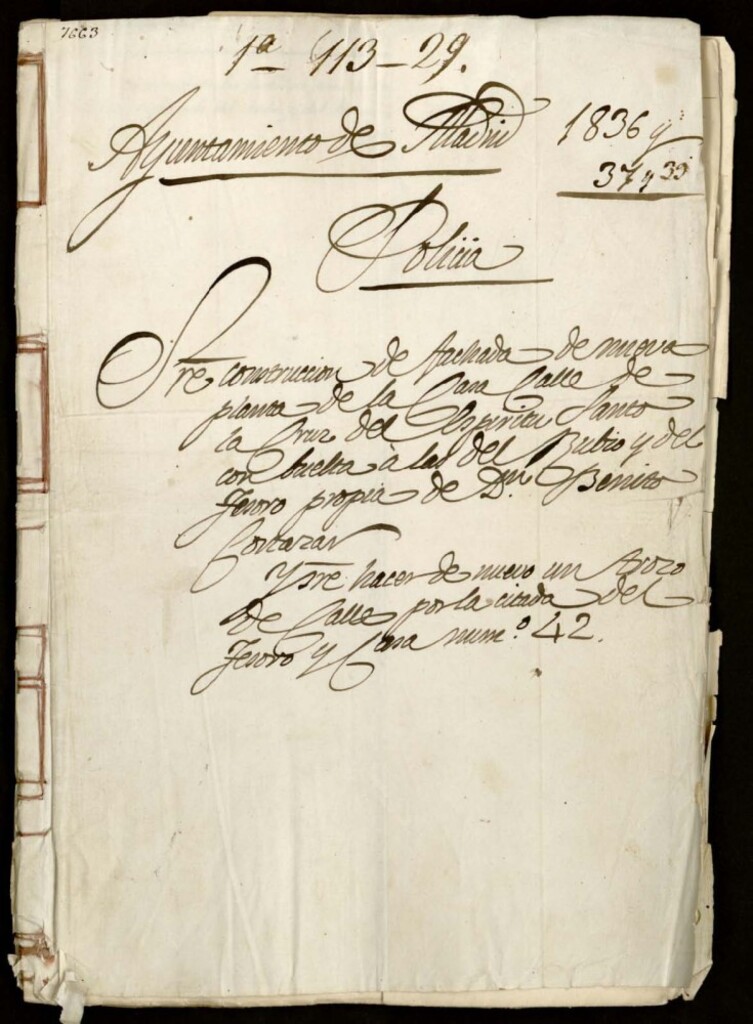 7663
1ª 113-29.
Ayuntamiento de Madrid
1836 y
37 y 39
Policia
Sre construccion de fachada de nueva
planta de la Casa Calle de
la Cruz del Espiritu Santo
con buelta à las del Rubio y del
Tesoro propia de Dn. Benito
Cortazar
Y sre hacer de nuevo un trozo
de Calle por la citada del
Tesoro y Casa num.º 42.